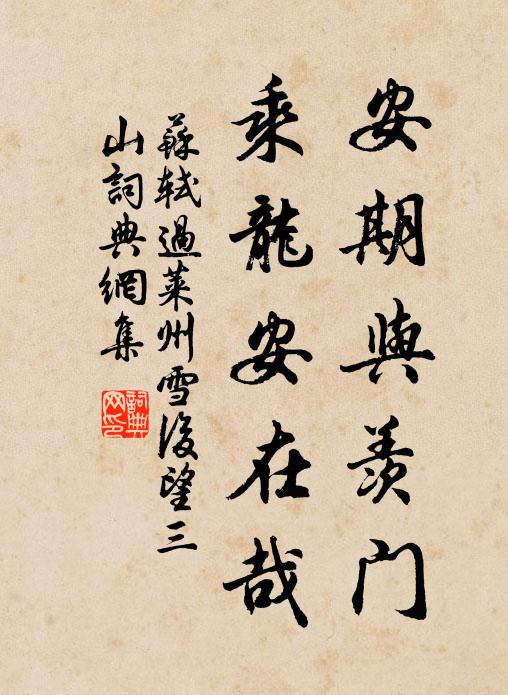 安期與羨門
乘龍安在哉
蘇軾過萊州雪後望三
山詞典網集
詞典
网印